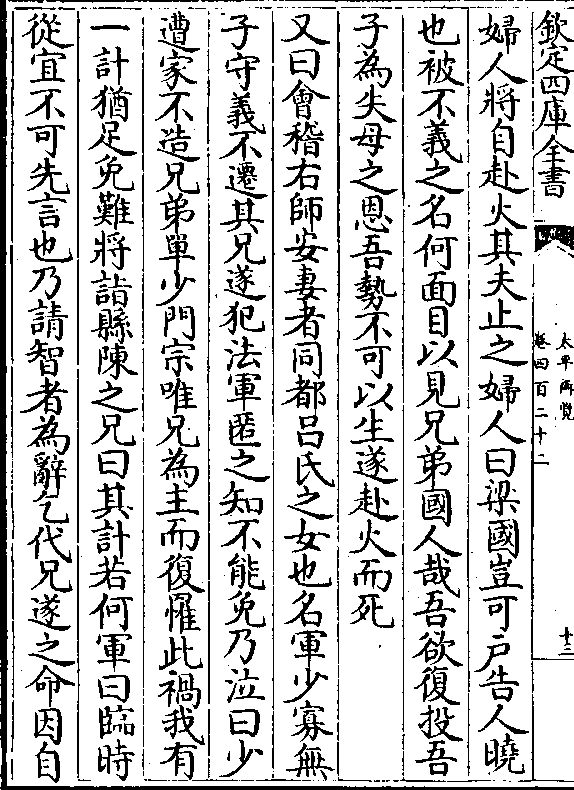 欽定四庫全書
太平御覽
卷四百二十二
十三
婦人將自赴火其夫止之婦人曰梁國豈可戶告人曉
也被不義之名何面目以見兄弟國人哉吾欲復投吾
子為失母之恩吾勢不可以生遂赴火而死
又曰會稽右師安妻者同都吕氏之女也名軍少寡無
子守義不遷其兄遂犯法軍匿之知不能免乃泣曰少
遭家不造兄弟單少門宗唯兄為主而復罹此禍我有
一計猶足免難將詣縣陳之兄曰其計若何軍曰臨時
從宜不可先言也乃請智者為辭乞代兄遂之命因自